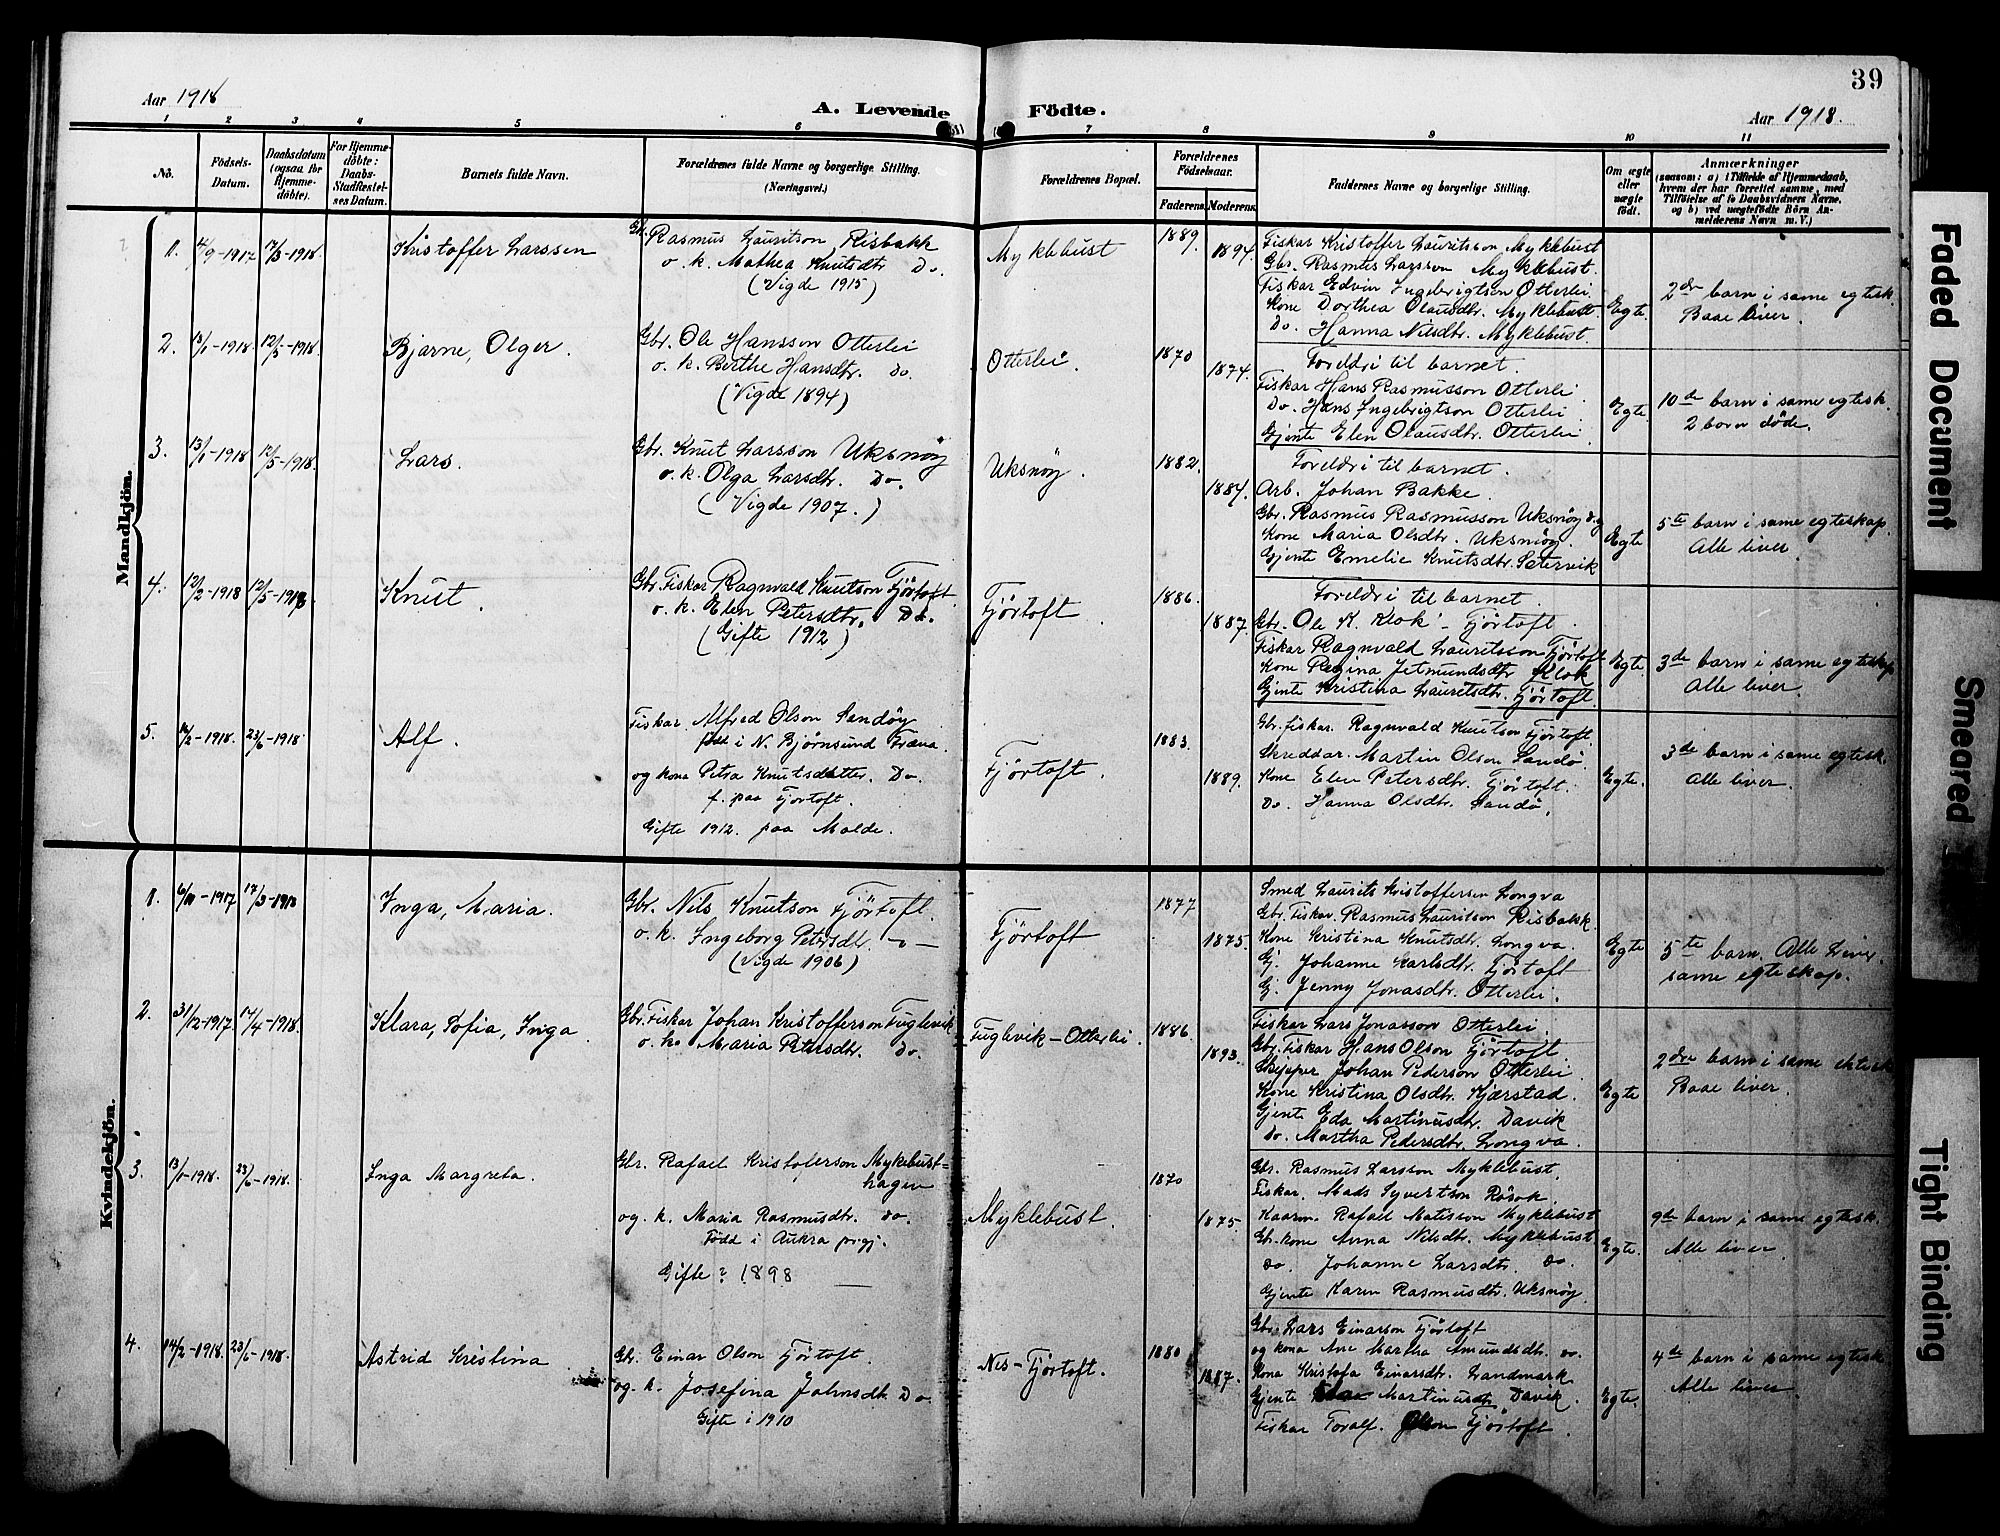 39
Aar 1918
A. Levende Födte.
Aar 1918.
1 2 3 4 5 6 7 8 9 10 11
No.
Födsels-Datum.
Daabsdatum (ogsaa for Hjemme-döbte).
For Hjemme-döbte: Daabs-Stadfæstel-ses Datum.
Barnets fulde Navn.
Forældrenes fulde Navne og borgerlige Stilling.
(Næringsvei.)
Forældrenes Bopæl.
Forældrenes Födselsaar.
Faderens. Moderens.
Faddernes Navne og borgerlige Stilling.
Om ægte eller uægte födt.
Anmærkninger
(saasom: a) i Tilfælde af Hjemmedaab,
hvem der har forrettet samme, med
Tilföielse af to Daabsvidners Navne,
og b) ved uægtefödte Börn An-
melderens Navn m. V.)
Mandkjön.
1. 4/9-1917 17/3-1918 Kristoffer Larssen
Gb. Rasmus Lauritson Risbakk
o. k. Mathea Knutsdtr Do.
(Vigde 1915)
Myklebust
1889. 1894.
Fiskar Kristoffer Lauritsson Myklebust
Gbr. Rasmus Larsson Myklebust.
Fiskar Edvin Ingebrigtson Otterlei
Kone Dorthea Olausdtr. Myklebust.
Do. Hanna Nilsdtr. Myklebust.
Egte.
2dre barn i same egtesk.
Baae liver.
2. 13/1-1918 12/5-1918. Bjarne, Olger.
Gbr. Ole Hansson Otterlei
o. k. Berthe Hansdtr. Do.
(Vigde 1894)
Otterlei.
1870 1874.
Foreldri til barnet.
Fiskar Hans Rasmusson Otterlei
Do. Hans Ingebrigtson Otterlei
Gjente Elen Olausdtr. Otterlei.
Egte
10de barn i same egtesk.
2 born döde.
3. 13/1-1918 12/5-1918. Lars.
Gbr. Knut Larsson Uksnöy
o. k. Olga Larsdtr. Do.
(Vigde 1907.)
Uksnöy.
1882. 1884.
Foreldri til barnet.
Arb. Johan Bakke.
Gbr. Rasmus Rasmusson Uksnöy og
Kone Maria Olsdtr. Uksnöy.
Gjente Emelie Knutsdtr. Sætervik
Egte
5te barn i same egteskap.
Alle liver.
4. 12/2-1918 12/5-1918 Knut.
Gbr. Fiskar Ragnvald Knutson Fjörtoft.
o. k. Elen Petersdtr. Do.
(Gifte 1912)
Fjörtoft.
1886. 1887.
Foreldri til barnet.
Gbr. Ole K. Klok - Fjörtoft.
Fiskar Ragnvald Lauritsson Fjörtoft
Kone Regina Jetmundsdtr Klok
Gjente Kristina Lauritsdtr. Fjörtoft
Egte.
3de barn i same egteskap
Alle liver.
5. /2-1918. 23/6-1918 Alf.
Fiskar Alfred Olson Sandöy
född i N. Björnsund Fræna
og kona Petra Knutsdatter. Do.
f. paa Fjörtoft.
Gifte 1912. paa Molde.
Fjörtoft.
1883. 1889.
Gbr. Fiskar. Ragnvald Knutson Fjörtoft
Skreddar. Martin Olson Sandö.
Kone Elen Petersdtr. Fjörtoft.
Do. Hanna Olsdtr. Sandö
Egte.
3de barn i same egtesk.
Alle liver.
Kvindekjön.
1. 17/3-1918 Inga, Maria.
Gbr. Nils Knutson Fjörtoft.
o. k. Ingeborg Petersdtr. -"-
(Vigde 1906)
Fjörtoft
1877 1875.
Smed Laurits Kristoffersen Longva
Gbr. Fiskar. Rasmus Lauritson Risbakk.
Kone Kristina Knutsdtr. Longva.
Gj. Johanne Karlsdtr. Fjörtoft
G. Jenny Jonasdtr. Otterlei.
Egte
5te barn. Alle Liver.
same egteskap.
2. 31/12-1917 17/4-1918. Klara, Sofia, Inga.
Gbr. Fiskar Johan Kristofferson Fuglevik
o. k. Maria Petersdtr. Do.
Fuglevik-Otterlei.
1886. 1893.
Fiskar Lars Jonasson Otterlei.
Gbr. Fiskar Hans Olson Fjörtoft.
Skipper Johan Pederson Otterlei
Kone Kristina Olsdtr. Kjærstad.
Gjente Eda Martinusdtr. Davik
Do. Martha Pedersdtr. Longva.
Egte
2dre barn i same ektesk
Baae liver.
3. 13/1-1918. 23/6-1918. Inga Margreta.
Gbr. Rafael Kristoferson Myklebust-
hagen
og. k. Maria Rasmusdtr. do.
Född i Aukra prgj.
Gifte? 1898
Myklebust.
1870 1875.
Gbr. Rasmus Larsson Myklebust.
Fiskar. Mads Syvertson Rösok.
Kaarm. Rafael Matisson Myklebust
Gb. kone Anna Nilsdtr. Myklebust
do. Johanne Larsdtr. Do.
Gjente Karen Rasmusdtr. Uksnöy
Egte.
9de barn i same egtesk.
Alle liver.
4. 14/2-1918. 23/6-1918. Astrid Kristina
Gbr. Einar Olson Fjörtoft.
og. k. Josefina Johnsdtr. Do.
Gifte i 1910
Nes-Fjörtoft.
1880 1887.
Gbr. Lars Einarson Fjörtoft
og kona Ane Martha Amundsdtr. do.
Kona Kristofa Einarsdtr. Landmark
Gjente Martinusdtr Davik.
Fiskar Toralf. Olson Fjörtoft.
Egte.
4de barn i same egtesk
Alle liver.
Faded Document
Smeared
Tight Binding